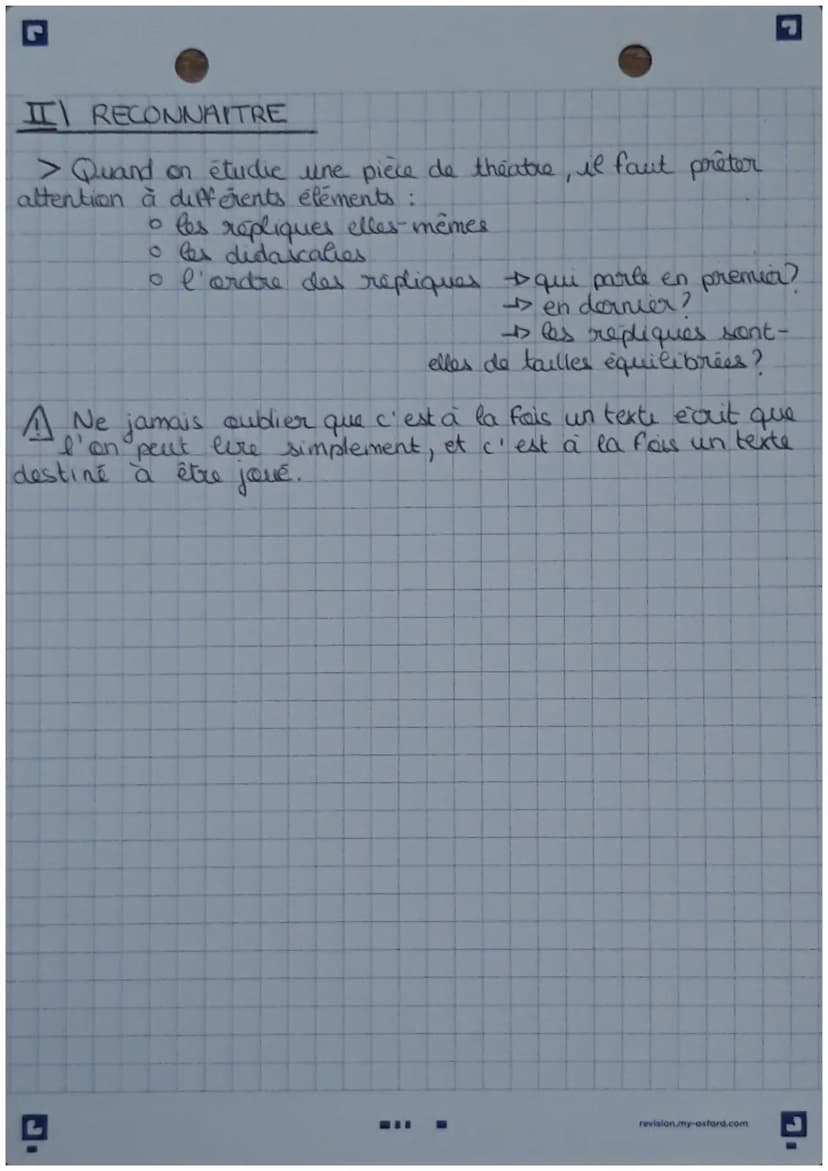 II\ RECONNAITRE
> Quand on étudie une pièce de théatre, il faut prêter
attention à différents éléments :
o les répliques elles-mêmes
o les didascalies
o l'ordre des répliques → qui parle en premier?
→ en dernier?
→ les répliques sont-
elles de tailles équilibrées?
⚠ Ne jamais oublier que c'est à la fois un texte écrit que
l'on peut lire simplement, et c'est à la fois un texte
destiné à être joué.
revision.my-oxford.com